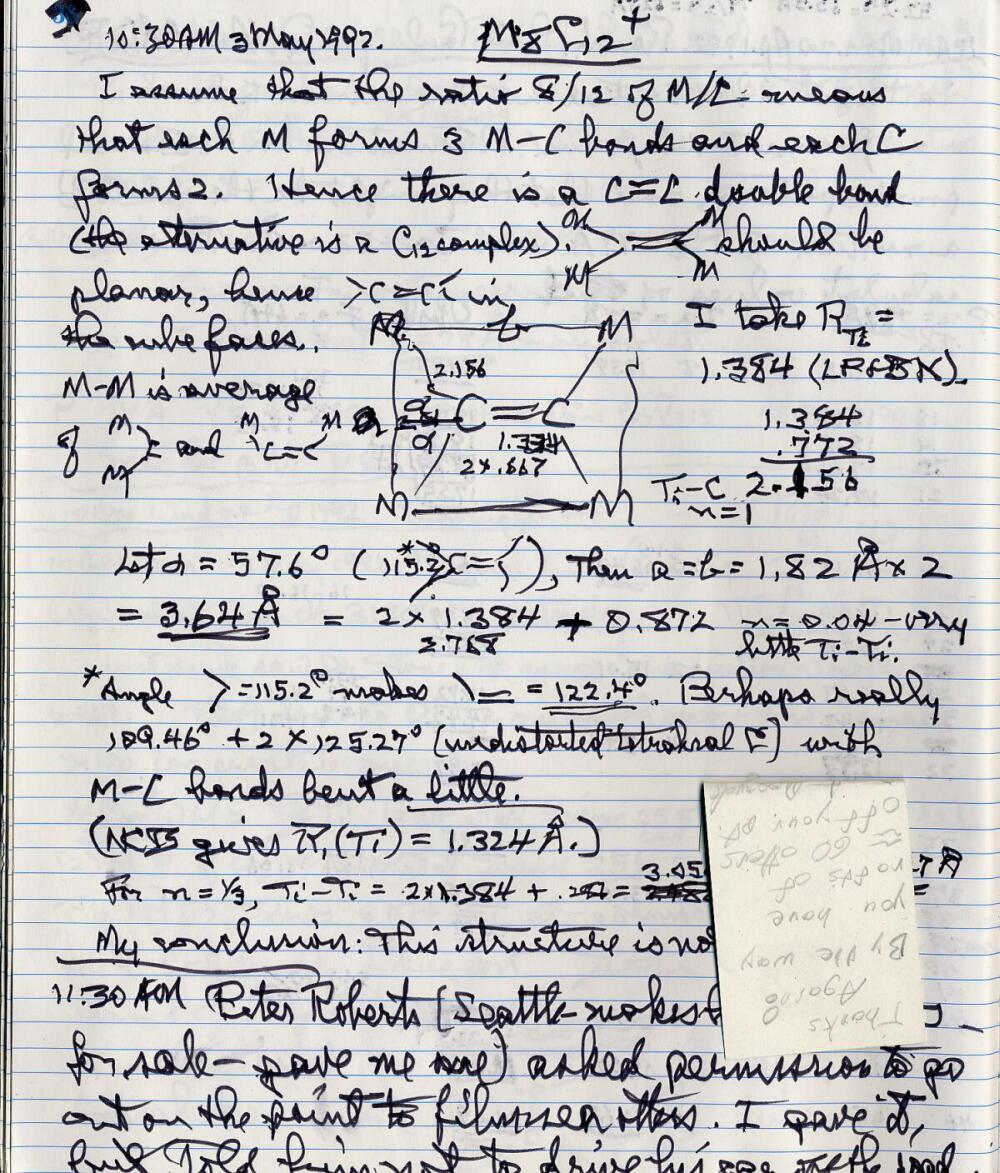 10:30 AM 3 May 1992. M8C12+
I assume that the ratio 8/12 of M/C means
that each M forms 3 M-C bonds and each C
forms 2. Hence there is a C=C double bond
(the alternative is a C12 complex). M M should be
M M
planar, hence >C=C< in
the cube faces.
M b M
I take RTi =
1.384 (LP&BK).
M-M is average
2.156
of M M and M >C=< M
C=C
α
α
1.334
2×.667
1.384
.772
Ti-C 2.156
n=1
M M
Let α = 57.6° (115.2° * C=), Then a=b=1.82 Å×2
= 3.64 Å = 2×1.384 + 0.872 n=0.04-very
2.768 little Ti-Ti.
*Angle >=115.2° makes = 122.4°. Perhaps really
109.46° + 2×125.27° (undistorted tetrahedral C) with
M-C bonds bent a little.
(NCB gives R1(Ti) = 1.324 Å.)
For n=1/3, Ti-Ti = 2×1.384 + = 3.05 Å
My conclusion: This structure is not
11:30 AM Peter Roberts (Seattle-makes
for sale-gave me one) asked permission to go
out on the point to film sea otters. I gave it,
but told him not to drive his car
Thanks
Again
By the way
you have
rafts of
≈ 60 otters
off your pt.